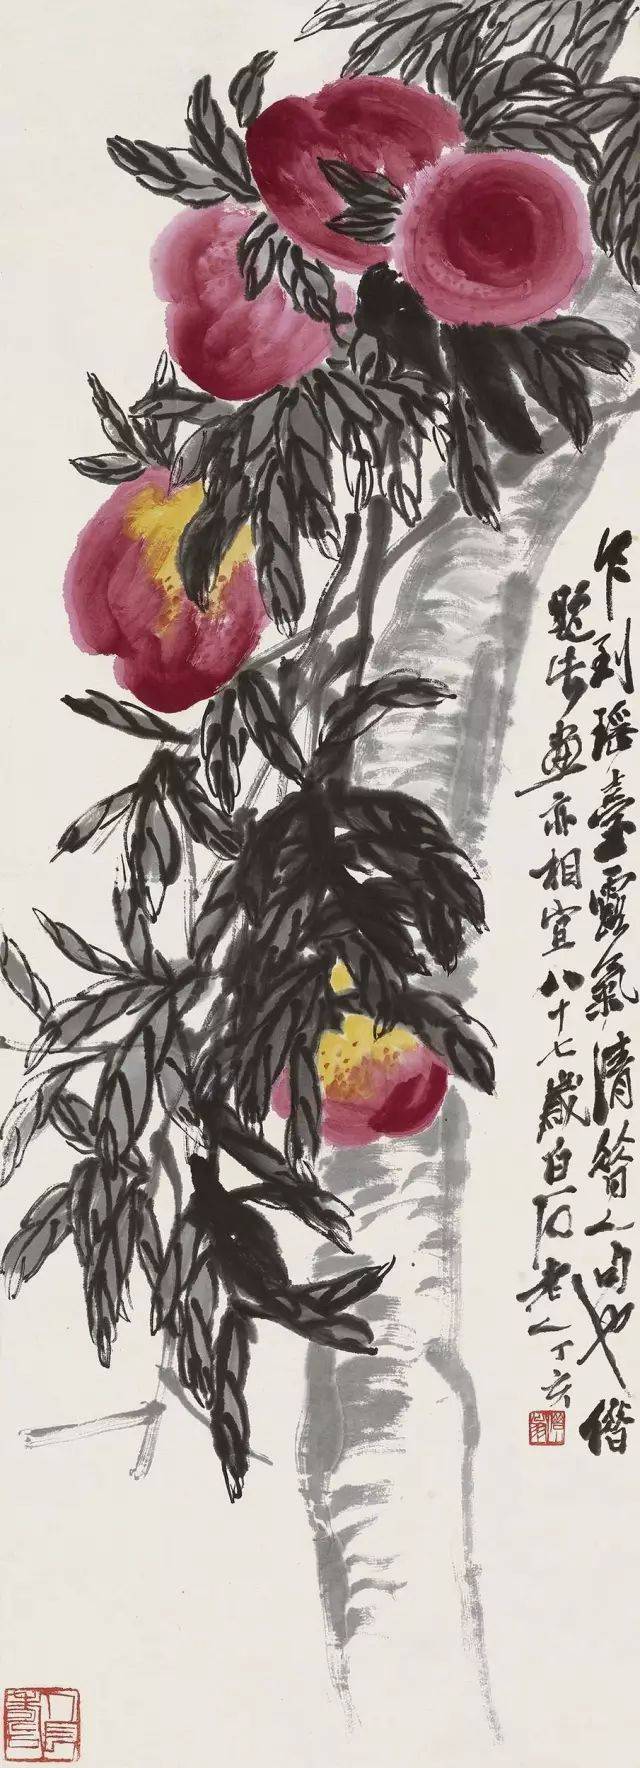 乍到瑶臺露氣清昔人句也借
題此畫亦相宜八十七歲白石老人丁亥